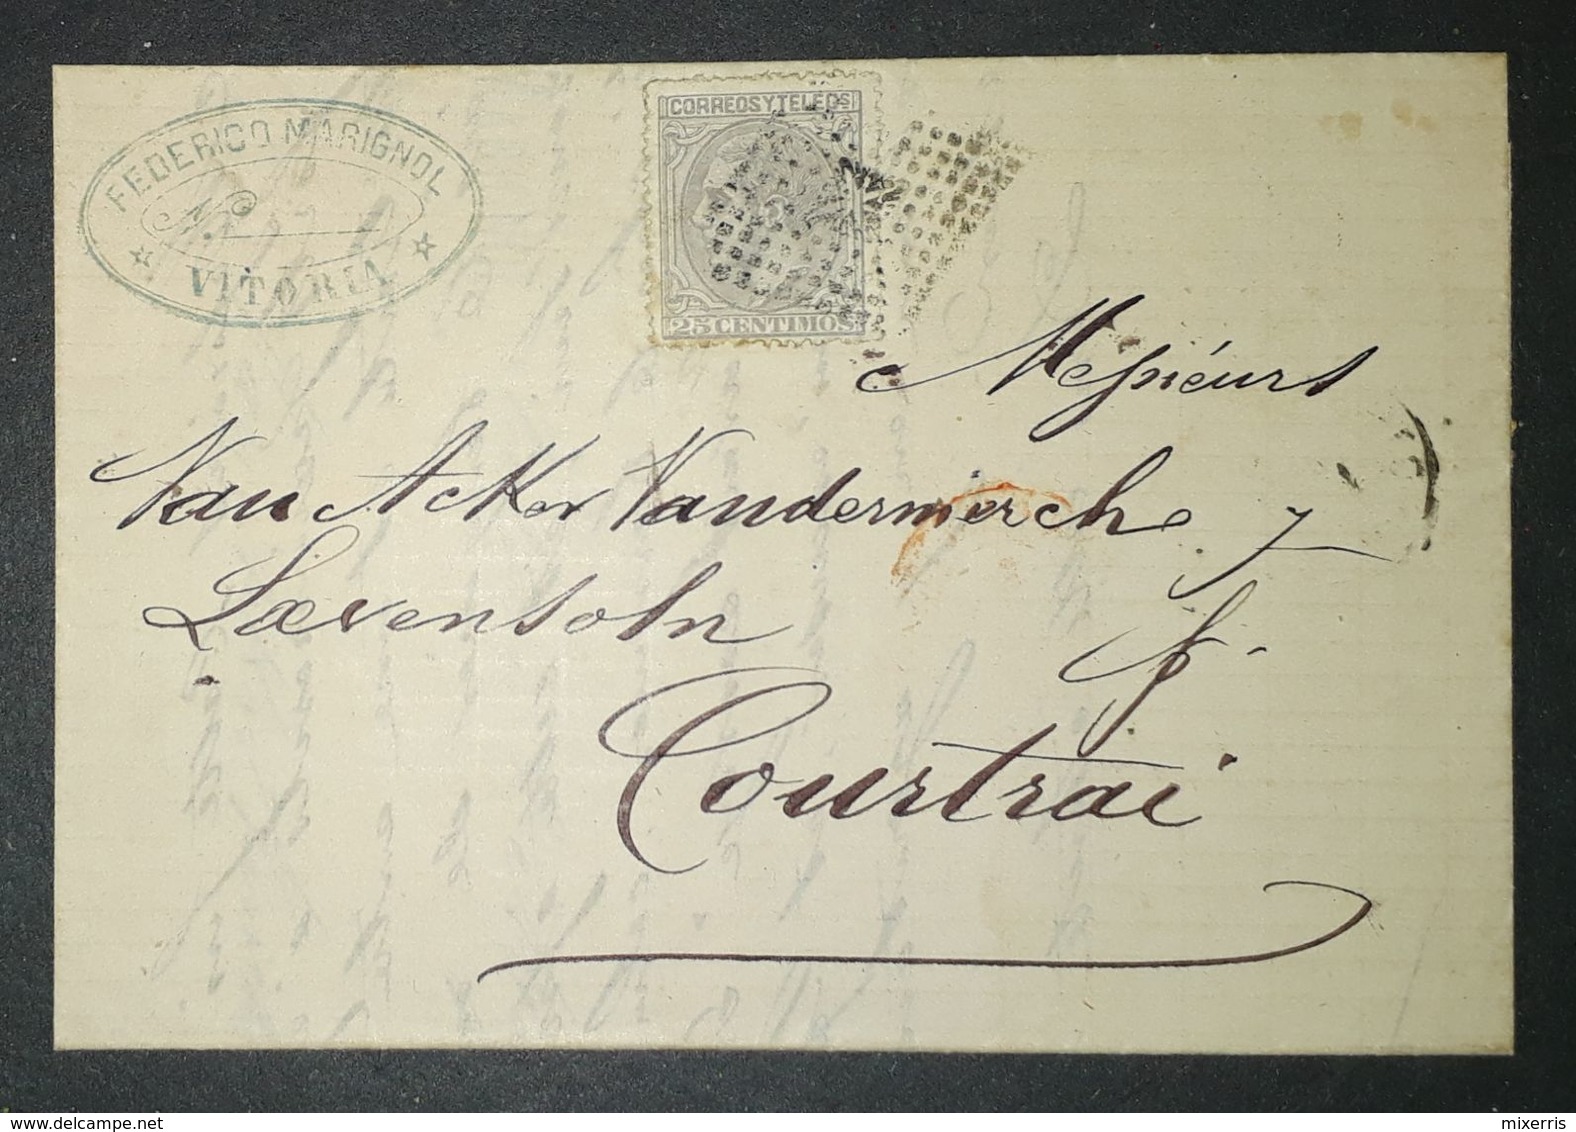 FEDERICO MARIGNOL
N.
VITORIA
CORREOS Y TELEGS
25 CENTIMOS
Messieurs
Van Acker Vandermerche y
Laevensoln
Courtrai
mixerris
www.delcampe.net